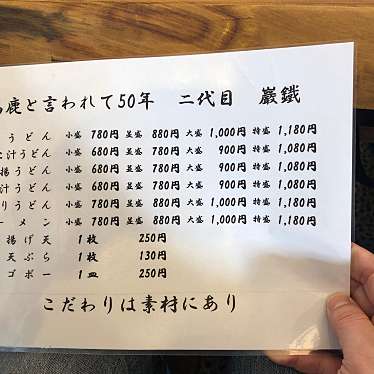 鹿と言われて50年 二代目 巌鐵
うどん 小盛 780円 並盛 880円 大盛 1,000円 特盛 1,180円
汁うどん 小盛 680円 並盛 780円 大盛 900円 特盛 1,080円
揚うどん 小盛 680円 並盛 780円 大盛 900円 特盛 1,080円
汁うどん 小盛 680円 並盛 780円 大盛 900円 特盛 1,080円
りうどん 小盛 780円 並盛 880円 大盛 1,000円 特盛 1,180円
ーメン 小盛 780円 並盛 880円 大盛 1,000円 特盛 1,180円
揚げ天 1枚 250円
天ぷら 1枚 130円
ゴボー 1皿 250円
こだわりは素材にあり